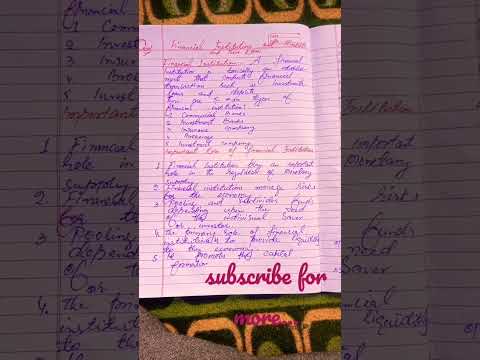 Financial Institution
Financial Institution :- A financial
institution basically an establish-
ment that conducts financial
transactions such as investments
loans and deposits
There are 5 main types of
financial institutions
1 Commercial Banks
2 Investment Banks
3 Insurance company
4 Brokerage
5 Investment company
Important role of financial Institution
1 Financial Institution play an important
role in the regulation of monetary
supply
2 Financial institution manage risks
for the economy
3 Pooling and funds
depending upon the need
of the individual saver
or investor
4 The role of financial
institution is to provide liquidity
to the economy
5 It promotes the capital
formation
subscribe for
more...